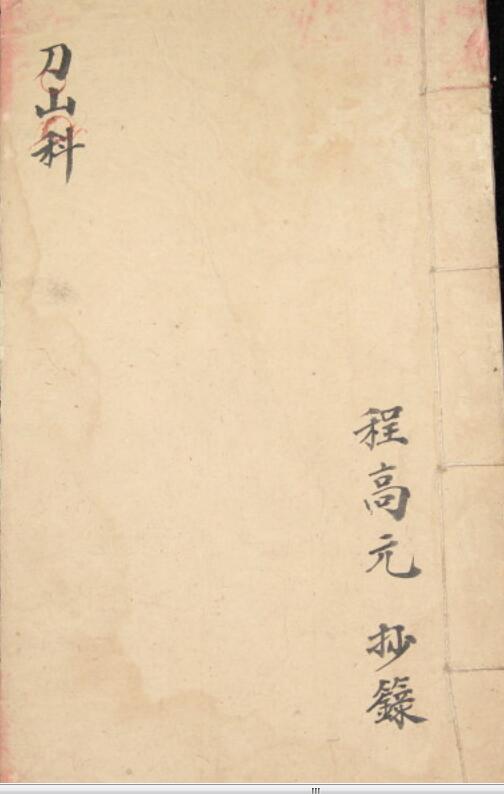 程高元 抄籙
刀山科